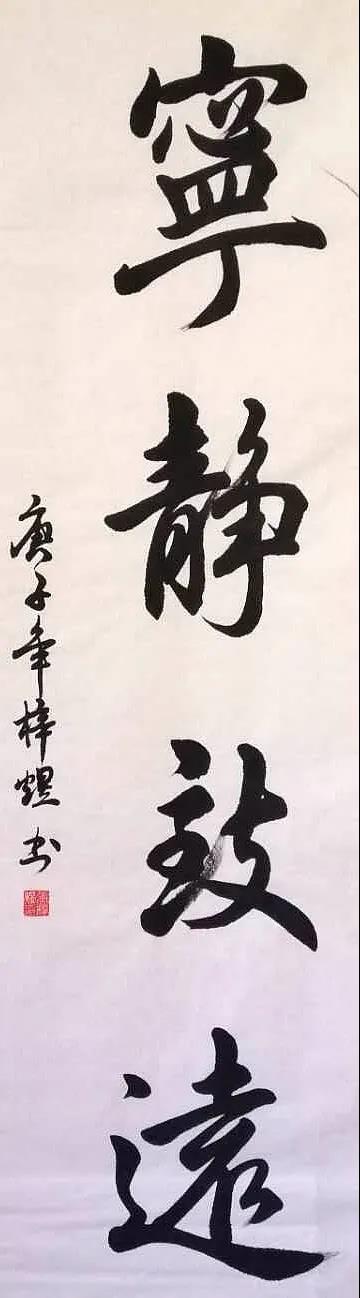 寧靜致遠
庚子年梓煜书